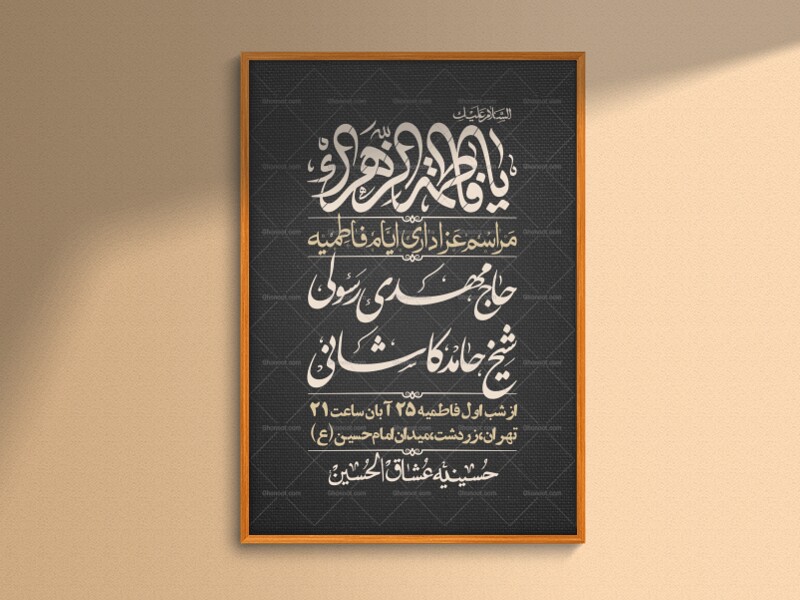 السلام علیك
یا فاطمة الزهراء
مراسم عزاداری ایام فاطمیه
حاج مهدی رسولی
شیخ حامد کاشانی
از شب اول فاطمیه ۲۵ آبان ساعت ۲۱
تهران، زردشت، میدان امام حسین (ع)
حسینیه عشاق الحسین
Ghonoot.com